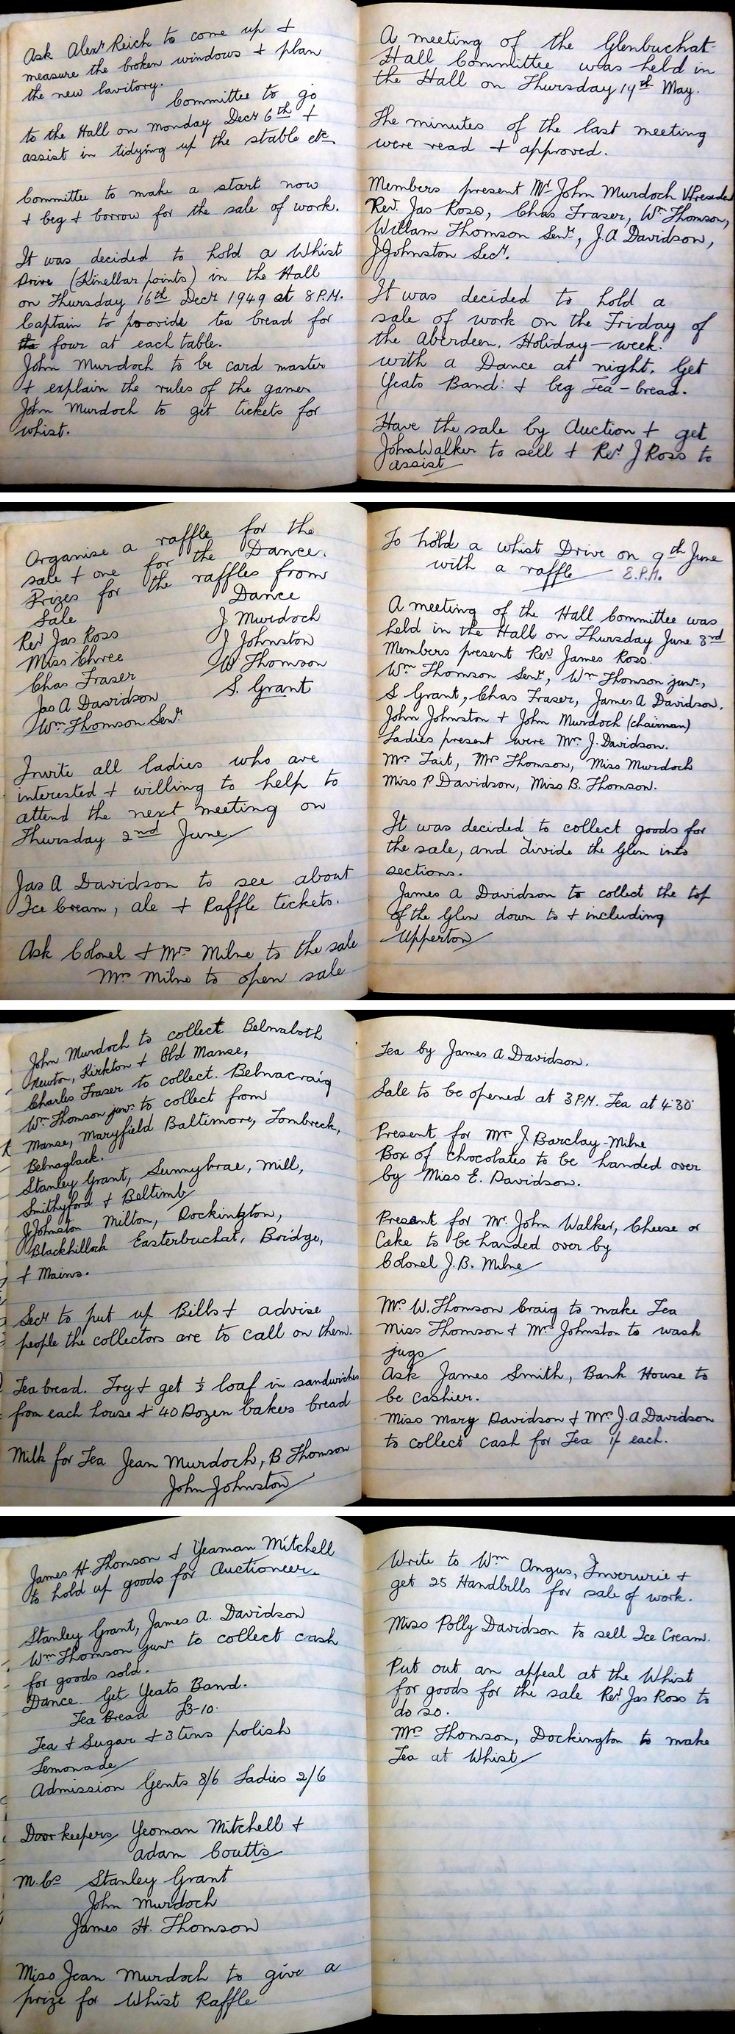 Ask Alexr Reich to come up +
measure the broken windows + plan
the new lavitory.
Committee to go
to the Hall on Monday Decr 6th +
assist in tidying up the stable etc
Committee to make a start now
+ beg + borrow for the sale of work.
It was decided to hold a Whist
Drive (Kinellar points) in the Hall
on Thursday 16th Decr 1949 at 8 P.M.
Captain to provide tea bread for
four at each table.
John Murdoch to be card master
+ explain the rules of the games
John Murdoch to get tickets for
whist.
A meeting of the Glenbuchat
Hall Committee was held in
the Hall on Thursday 19th May.
The minutes of the last meeting
were read + approved.
Members present Mr John Murdoch V.President
Rev. Jas Ross, Chas Fraser, Wm Thomson,
William Thomson Senr, J.A Davidson,
J Johnston Secr.
It was decided to hold a
sale of work on the Friday of
the Aberdeen. Holiday-week.
with a Dance at night. Get
Yeats Band: + beg Tea-bread.
Have the sale by Auction + get
John Walker to sell + Rev. J Ross to
assist
Organise a raffle for the
sale + one for the Dance.
Prizes for the raffles from
Sale Dance
Rev Jas Ross J. Murdoch
Miss Chree J Johnston
Chas Fraser W Thomson
Jas A Davidson S. Grant
Wm Thomson Senr
Invite all ladies who are
interested + willing to help to
attend the next meeting on
Thursday 2nd June
Jas A Davidson to see about
Ice Cream, ale + Raffle tickets.
Ask Colonel + Mrs Milne to the sale
Mrs Milne to open sale
To hold a whist Drive on 9th June
with a raffle 8.P.M.
A meeting of the Hall Committee was
held in the Hall on Thursday June
Members present Rev. James Ross
Wm Thomson Senr, Wm Thomson junr,
S Grant, Chas Fraser, James A Davidson.
John Johnston + John Murdoch (chairman)
Ladies present were Mrs J. Davidson.
Mrs Tait, Mrs Thomson, Miss Murdoch
Miss P Davidson, Miss B. Thomson.
It was decided to collect goods for
the sale, and divide the Glen into
sections.
James A Davidson to collect the top
of the Glen down to + including
Upperton
John Murdoch to collect Belnaboth
Newton, Kirkton + Old Manse,
Charles Fraser to collect. Belnacraig
Wm Thomson junr to collect from
Manse, Maryfield Baltimore, Tombreck,
Belnaglack.
Stanley Grant, Sunnybrae, Mill,
Smithyford + Beltimb
J Johnston Milton, Dockington,
Blackhilloch Easterbuchat, Bridge,
+ Mains.
Secr to put up Bills + advise
people the collectors are to call on them.
Tea bread. Try + get ½ loaf in sandwiches
from each house + 40 Dozen bakers bread
Milk for Tea Jean Murdoch, B Thomson
John Johnston
Tea by James A Davidson.
Sale to be opened at 3 P.M. Tea at 4.30
Present for Mrs J. Barclay-Milne
Box of chocolates to be handed over
by Miss E. Davidson.
Present for Mr John Walker, Cheese or
Cake to be handed over by
Colonel J.B. Milne
Mrs W. Thomson Craig to make Tea
Miss Thomson + Mrs Johnston to wash
jugs
Ask James Smith, Bank House to
be cashier.
Miss Mary Davidson + Mrs J.A Davidson
to collect cash for Tea 1/ each.
James H. Thomson + Yeaman Mitchell
to hold up goods for Auctioneer.
Stanley Grant, James A. Davidson
Wm Thomson junr to collect cash
for goods sold.
Dance. Get Yeats Band.
Tea Bread £3-10.
Tea + Sugar + 3 tins polish
Lemonade
Admission Gents 3/6 Ladies 2/6
Door keepers Yeoman Mitchell +
Adam Coutts
M.Cs Stanley Grant
John Murdoch
James H. Thomson
Miss Jean Murdoch to give a
prize for Whist Raffle
Write to Wm Angus, Inverurie +
get 25 Handbills for sale of work.
Miss Polly Davidson to sell Ice Cream.
Put out an appeal at the Whist
for goods for the sale Rev. Jas Ross to
do so.
Mrs Thomson, Dockington to make
Tea at Whist